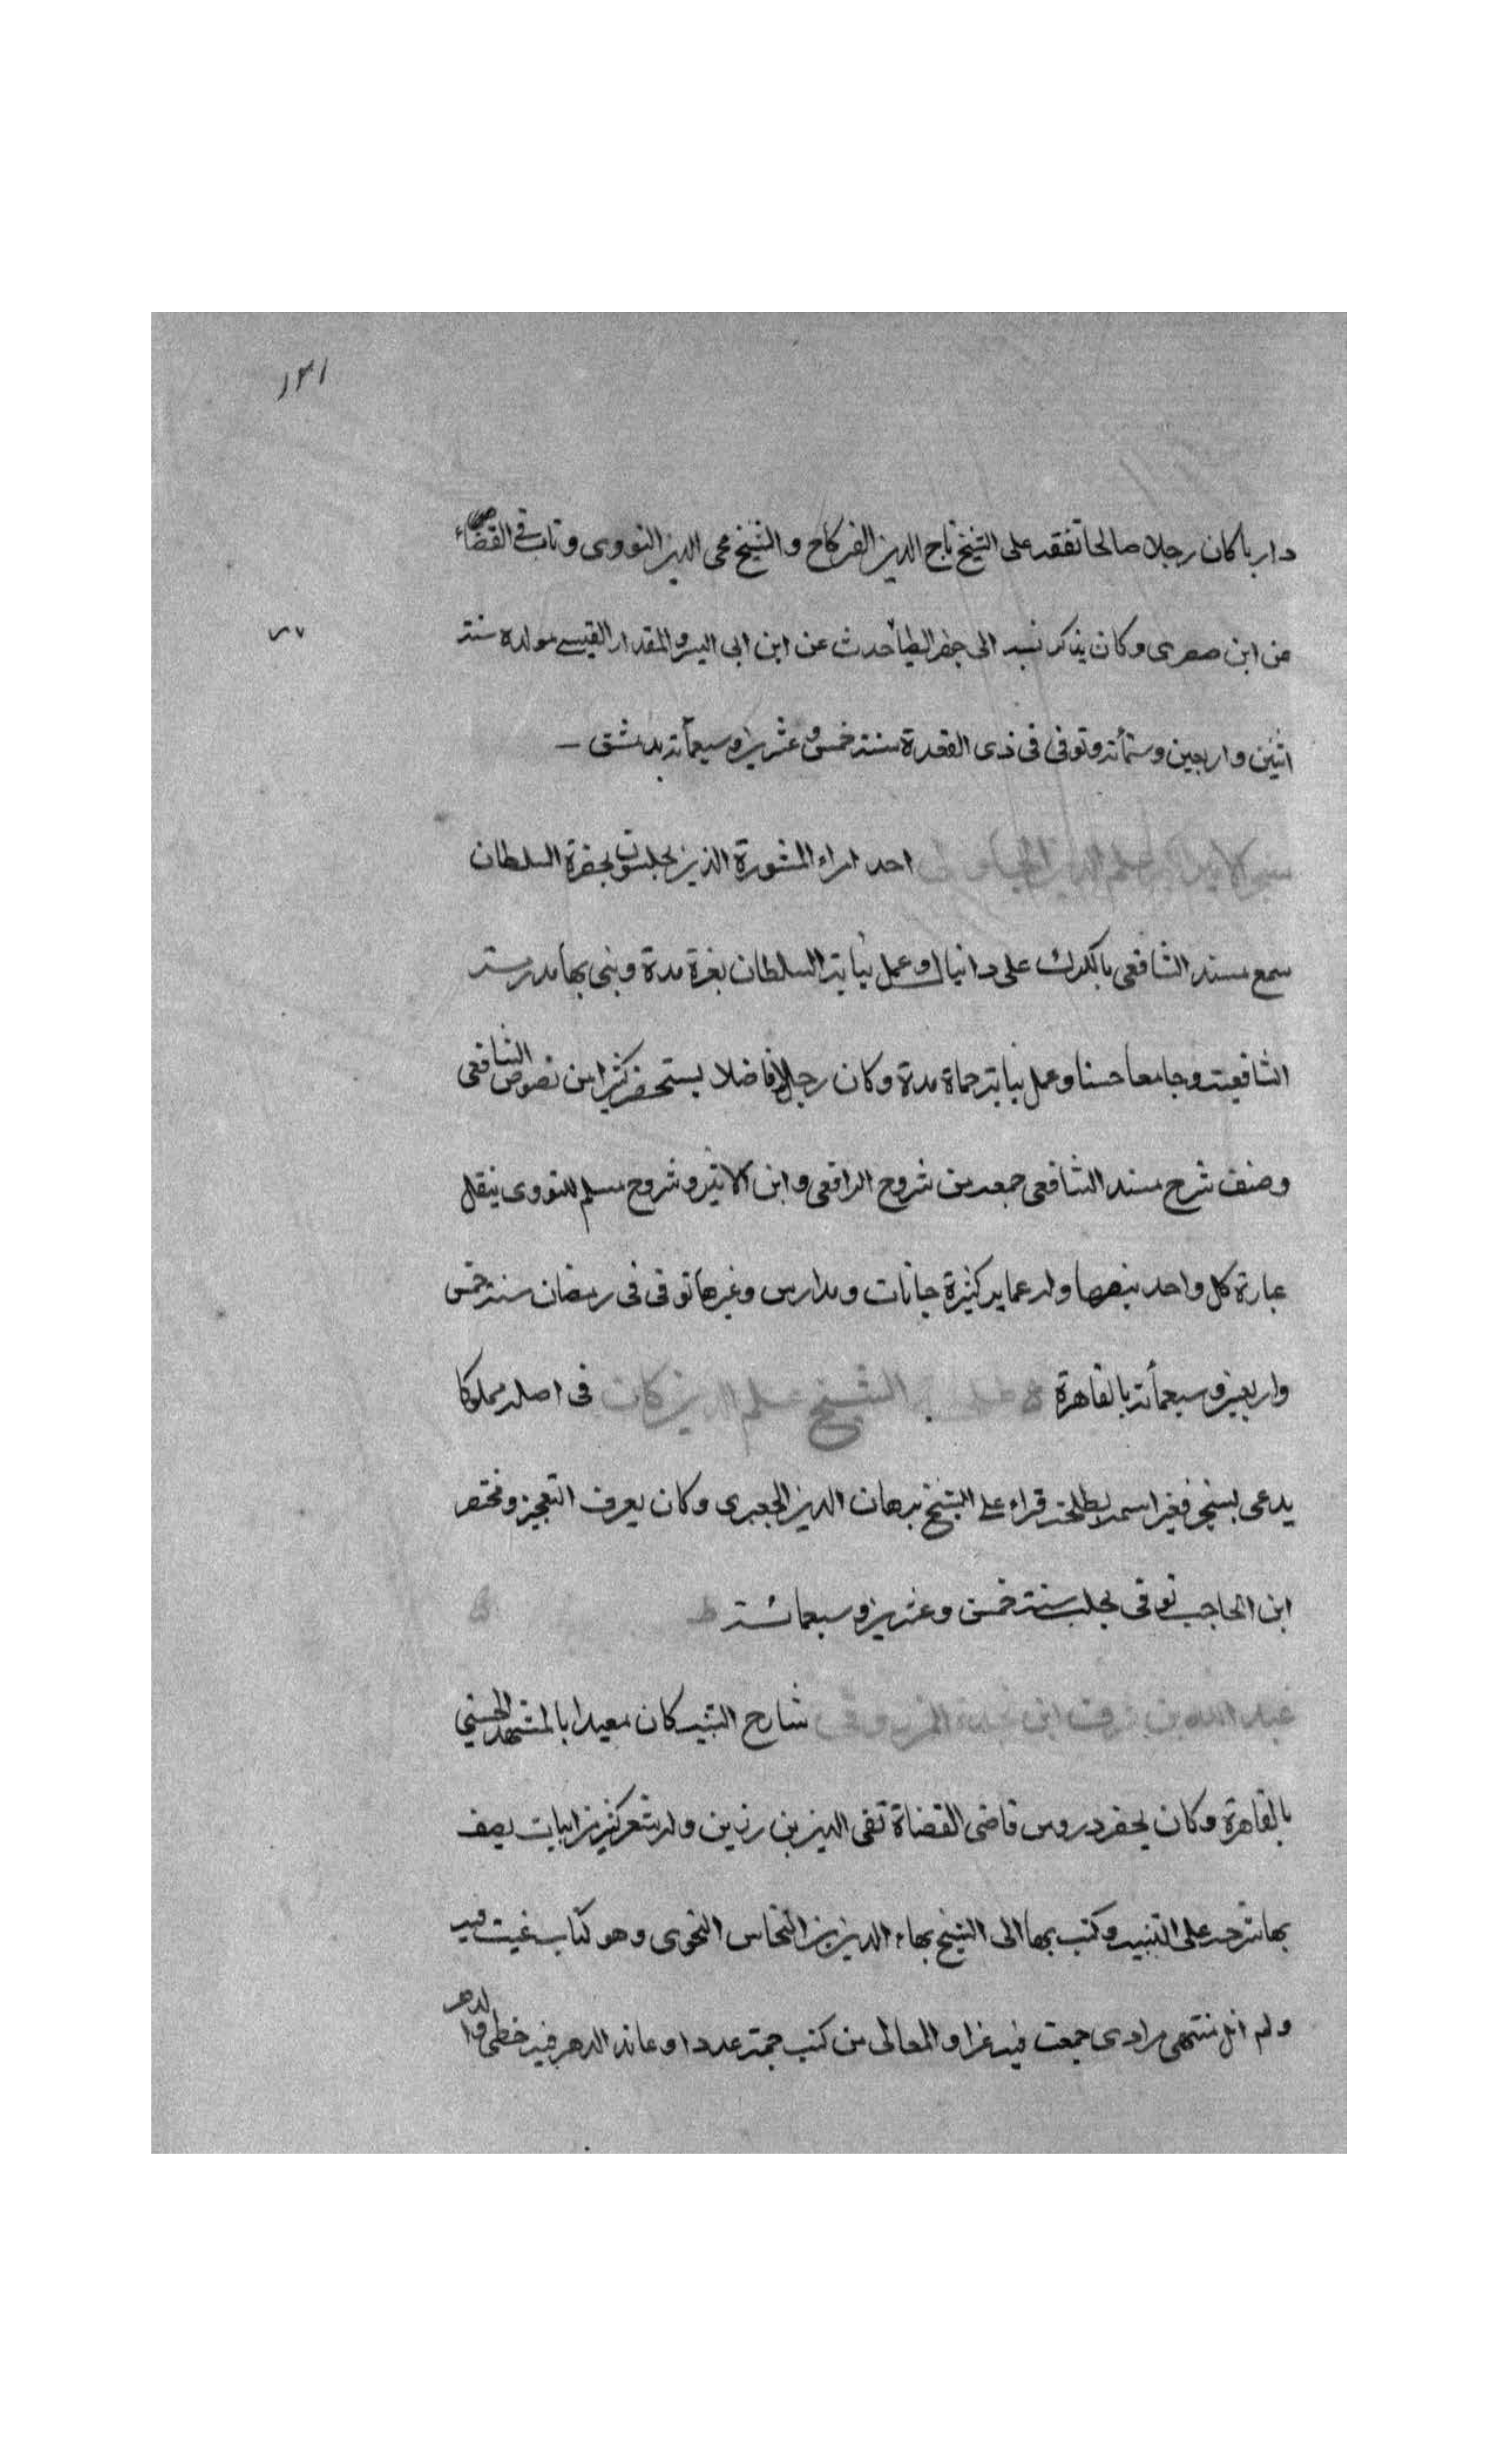 ١٣١
داريا كان رجلا صالحا تفقه على الشيخ تاج الدين الفركاح والشيخ محى الدين النووى وناب فى القضاء
من ابن صصرى وكان يذكر نسبه الى جعفر الطيار حدث عن ابن ابى اليسر والمقداد القيسى مولده سنة
اثنين واربعين وستمأته وتوفى فى ذى القعدة سنة خمس وعشرين وسبعمأته بدمشق
سنجر الامير علم الدين الجاولى احد امراء المشورة الذين يجلسون بحضرة السلطان
سمع مسند الشافعى بالكرك على دانيال وعمل نيابة السلطان بغزة مدة وبنى بها مدرسة
الشافعية وجامعا حسنا وعمل نيابة حماة مدة وكان رجلا فاضلا يستحضر كثيرا من نصوص الشافعى
وصنف شرح مسند الشافعى جمعه من شروح الرافعى وابن الاثير وشروح مسلم للنووى ينقل
عبارة كل واحد بنصها وله عماير كثيرة خانات ومدارس وغيرها توفى فى رمضان سنة خمس
واربعين وسبعمأته بالقاهرة الشيخ علم الدين كان فى اصله مملوكا
يدعى بسنجر فغير اسمه بطلحة قراء على الشيخ برهان الدين الجعبرى وكان يعرف التعجيز ومختصر
ابن الحاجب توفى بحلب سنة خمس وعشرين وسبعمائة
عبد الله بن شرف ابن نجدة المرزوقى شارح التنبيه كان معيدا بالمشهد الحسينى
بالقاهرة وكان يحضر دروس قاضى القضاة تقى الدين بن رزين وله شعر كثير من ابيات يصف
بها شرحه على التنبيه وكتب بها الى الشيخ بهاء الدين بن النحاس النحوى وهو كتاب فيه
ولم انل منتهى مرادى جمعت فيه غرا والمعالى من كتب جمة عددا وعاند الدهر فيه خطى والدهر